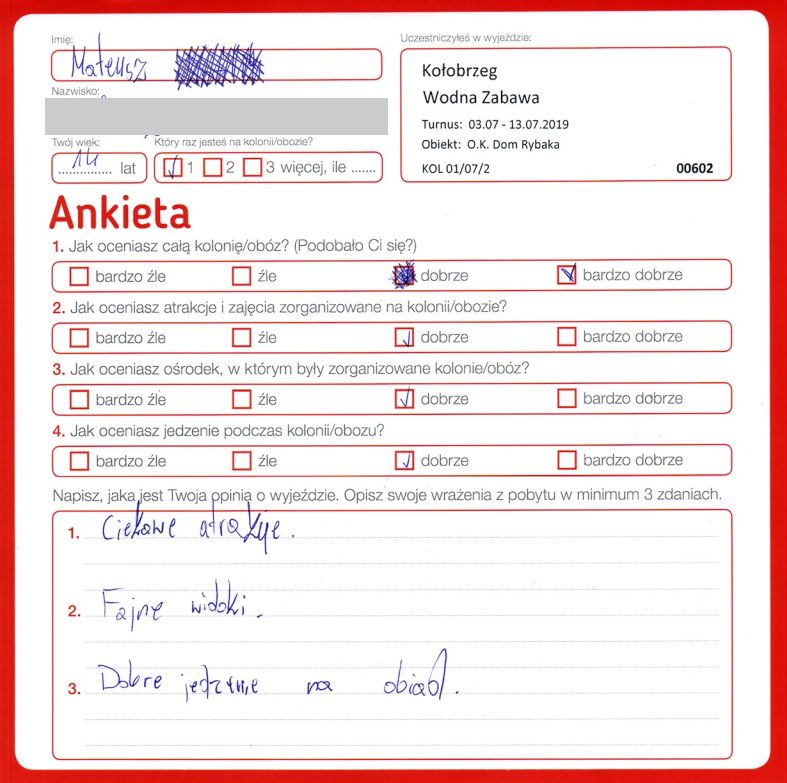 Imię:
Mateusz
Nazwisko:
Twój wiek:
14 lat
Który raz jesteś na kolonii/obozie?
1 2 3 więcej, ile .......
Uczestniczyłeś w wyjeździe:
Kołobrzeg
Wodna Zabawa
Turnus: 03.07 - 13.07.2019
Obiekt: O.K. Dom Rybaka
KOL 01/07/2 00602
Ankieta
1. Jak oceniasz całą kolonię/obóz? (Podobało Ci się?)
bardzo źle źle dobrze bardzo dobrze
2. Jak oceniasz atrakcje i zajęcia zorganizowane na kolonii/obozie?
bardzo źle źle dobrze bardzo dobrze
3. Jak oceniasz ośrodek, w którym były zorganizowane kolonie/obóz?
bardzo źle źle dobrze bardzo dobrze
4. Jak oceniasz jedzenie podczas kolonii/obozu?
bardzo źle źle dobrze bardzo dobrze
Napisz, jaka jest Twoja opinia o wyjeździe. Opisz swoje wrażenia z pobytu w minimum 3 zdaniach.
1. Ciekawe atrakcje.
2. Fajne widoki.
3. Dobre jedzenie na obiad.